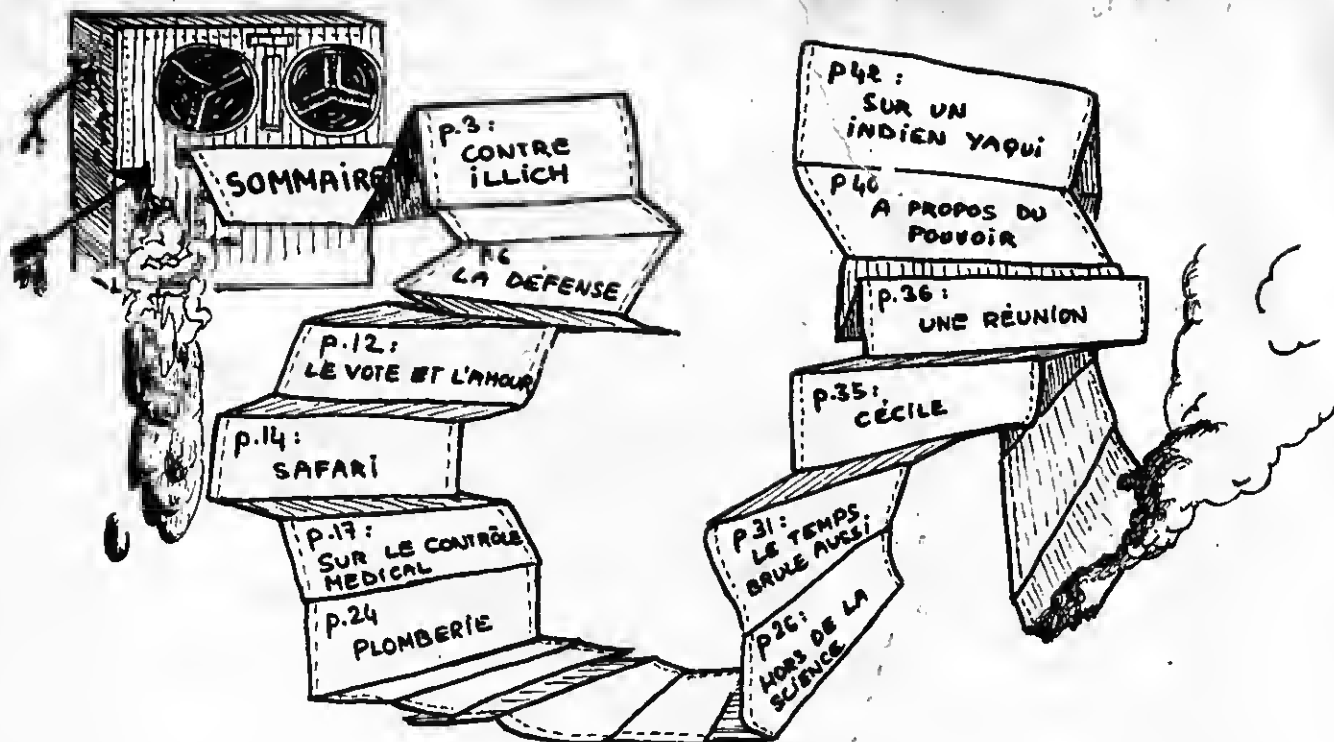 SOMMAIRE
p.3:
CONTRE
ILLICH
p.6
LA DÉFENSE
p.12:
LE VOTE ET L'AMOUR
p.14:
SAFARI
p.17:
SUR LE CONTRÔLE
MEDICAL
p.24
PLOMBERIE
p26:
HORS DE LA
SCIENCE
p31:
LE TEMPS
BRULE AUSSI
p.35:
CÉCILE
p.36:
UNE RÉUNION
p40
A PROPOS DU
POUVOIR
p42:
SUR UN
INDIEN YAQUI